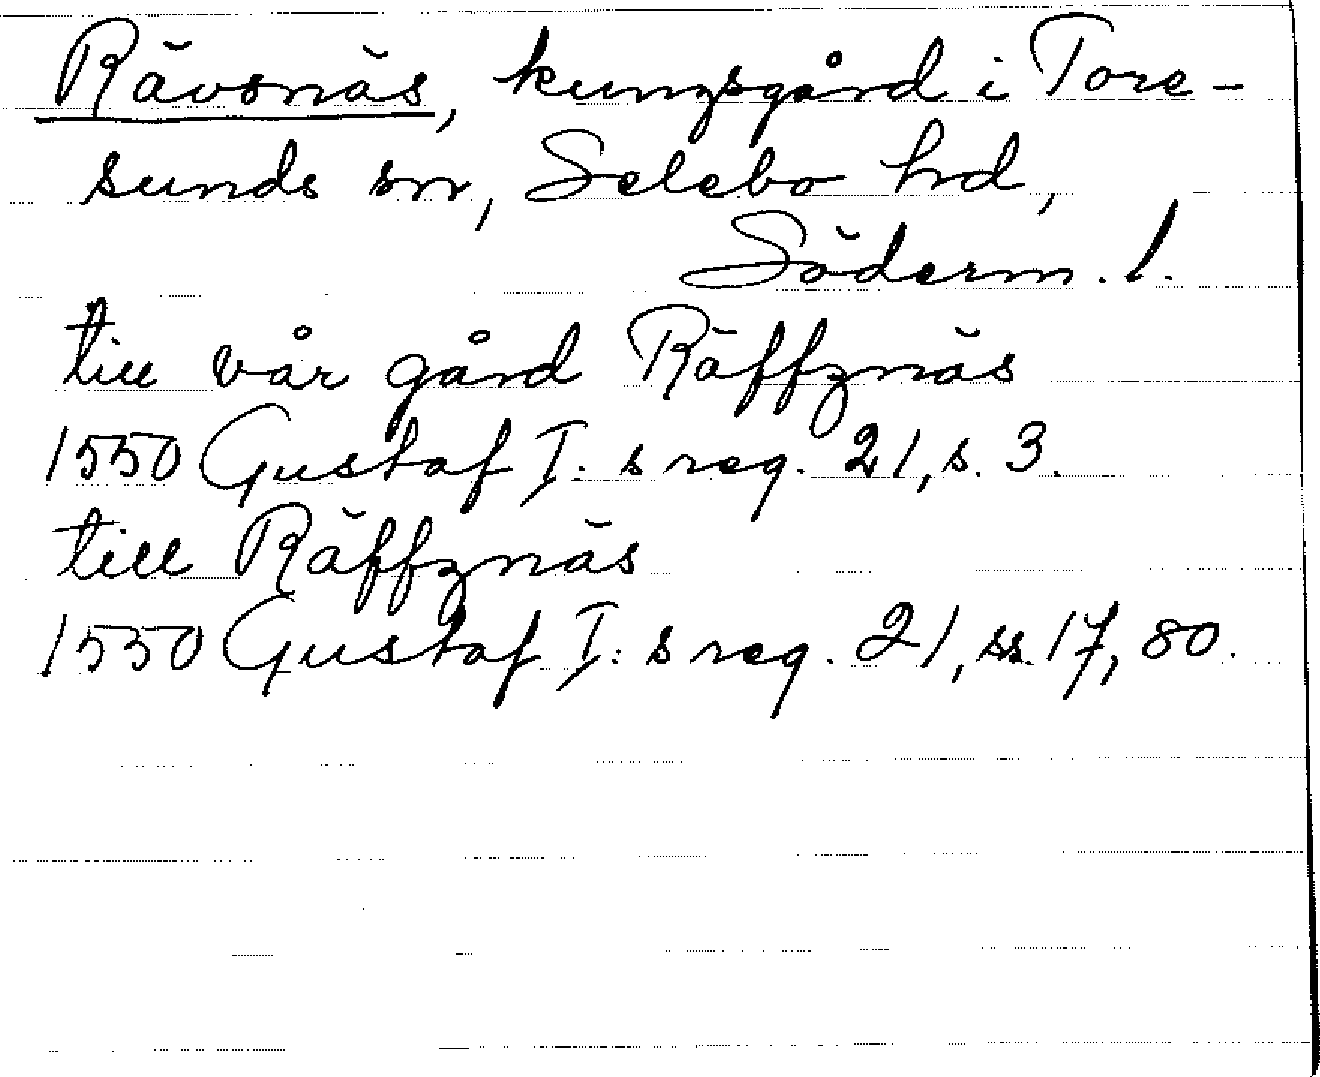 Rävsnäs, kungsgård i Tore-
sunds sn, Selebo hd,
Söderm. l.
till vår gård Räffznäs
1550 Gustaf I:s reg. 21, s. 3.
till Räffznäs
1550 Gustaf I:s reg. 21, ss. 17, 80.